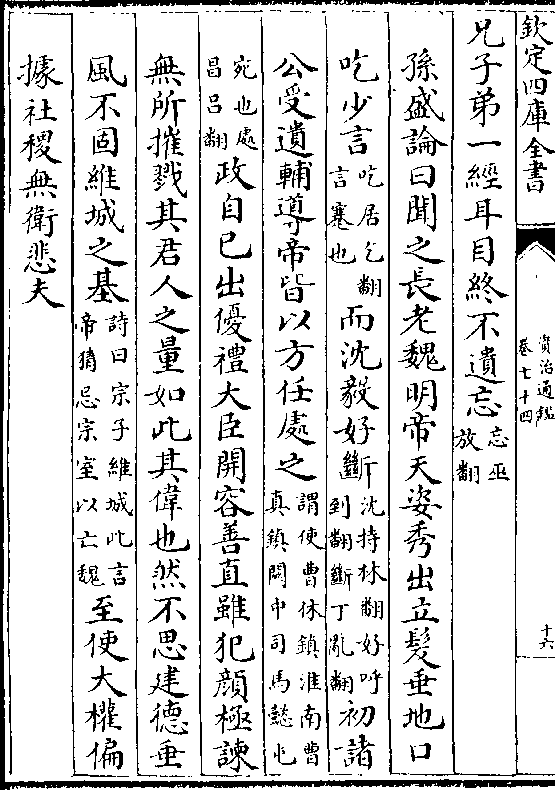 欽定四庫全書
資治通鑑
卷七十四
十六
兄子弟一經耳目終不遺忘忘巫放翻
孫盛論曰聞之長老魏明帝天姿秀出立髮垂地口
吃少言吃居乞翻言蹇也而沈毅好斷沈持林翻好呼到翻斷丁亂翻初諸
公受遺輔導帝皆以方任處之謂使曹休鎮淮南曹真鎮關中司馬懿屯
宛也處昌呂翻政自已出優禮大臣開容善直雖犯顔極諫
無所摧戮其君人之量如此其偉也然不思建德垂
風不固維城之基詩曰宗子維城此言帝猜忌宗室以亡魏至使大權偏
據社稷無衛悲夫